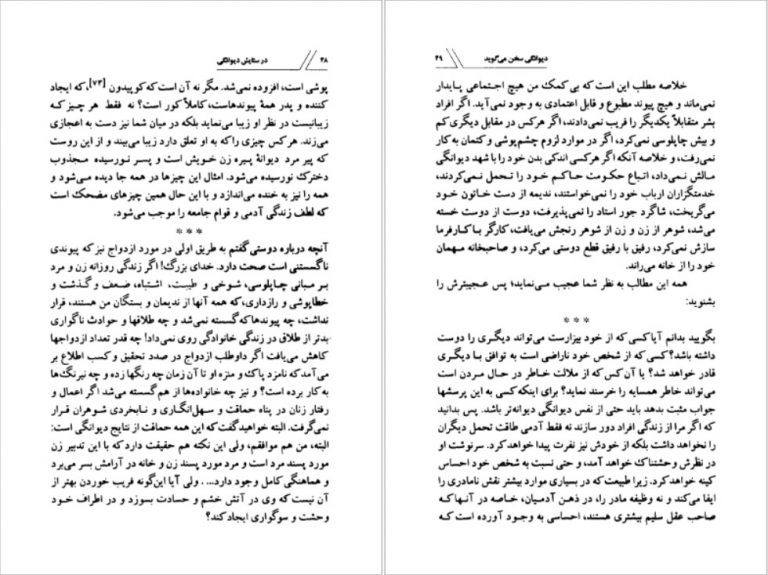 ۴۸ در ستایش دیوانگی
پوشی است، افزوده نمی‌شد. مگر نه آن است که کوپیدون [۷۳]، که ایجاد
کننده و پدر همهٔ پیوندهاست، کاملاً کور است؟ نه فقط هر چیز که
زیبانیست در نظر او زیبا می‌نماید بلکه در میان شما نیز دست به اعجازی
می‌زند. هرکس چیزی را که به او تعلق دارد زیبا می‌بیند و از این روست
که پیر مرد دیوانهٔ پیره زن خویش است و پسر نورسیده مجذوب
دخترک نورسیده می‌شود. امثال این چیزها در همه جا دیده می‌شود و
همه را نیز به خنده می‌اندازد و با این حال همین چیزهای مضحک است
که لطف زندگی آدمی و قوام جامعه را موجب می‌شود.
* * *
آنچه درباره دوستی گفتم به طریق اولی در مورد ازدواج نیز که پیوندی
ناگسستنی است صحت دارد. خدای بزرگ! اگر زندگی روزانه زن و مرد
بر مبانی چاپلوسی، شوخی و طیبت، اشتباه، ضعف و گذشت و
خطاپوشی و رازداری، که همه آنها از ندیمان و بستگان من هستند، قرار
نداشت، چه پیوندها که گسسته نمی‌شد و چه طلاقها و حوادث ناگواری
بدتر از طلاق در زندگی خانوادگی روی نمی‌داد! چه قدر تعداد ازدواجها
کاهش می‌یافت اگر داوطلب ازدواج در صدد تحقیق و کسب اطلاع بر
می‌آمد که نامزد پاک و منزه او تا آن زمان چه رنگها زده و چه نیرنگ‌ها
به کار برده است؟ و نیز چه خانواده‌ها از هم گسسته می‌شد اگر اعمال و
رفتار زنان در پناه حماقت و سهل‌انگاری و نابخردی شوهران قرار
نمی‌گرفت. البته خواهید گفت که این همه حماقت از نتایج دیوانگی است:
البته، من هم موافقم، ولی این نکته هم حقیقت دارد که با این تدبیر زن
مورد پسند مرد است و مرد مورد پسند زن و خانه در آرامش بسر می‌برد
و هماهنگی کامل وجود دارد.... ولی آیا این‌گونه فریب خوردن بهتر از
آن نیست که وی در آتش خشم و حسادت بسوزد و در اطراف خود
وحشت و سوگواری ایجاد کند؟
دیوانگی سخن می‌گوید ۴۹
خلاصه مطلب این است که بی‌کمک من هیچ اجتماعی پایدار
نمی‌ماند و هیچ پیوند مطبوع و قابل اعتمادی به وجود نمی‌آید. اگر افراد
بشر متقابلاً یکدیگر را فریب نمی‌دادند، اگر هرکس در مقابل دیگری کم
و بیش چاپلوسی نمی‌کرد، اگر در موارد لزوم چشم‌پوشی و کتمان به کار
نمی‌رفت، و خلاصه آنکه اگر هرکسی اندکی بدن خود را با شهد دیوانگی
مالش نمی‌داد، اتباع حکومت حاکم خود را تحمل نمی‌کردند،
خدمتگزاران ارباب خود را نمی‌خواستند، ندیمه از دست خاتون خود
می‌گریخت، شاگرد جور استاد را نمی‌پذیرفت، دوست از دوست خسته
می‌شد، شوهر از زن و زن از شوهر رنجش می‌یافت، کارگر با کارفرما
سازش نمی‌کرد، رفیق با رفیق قطع دوستی می‌کرد، و صاحبخانه مهمان
خود را از خانه می‌راند.
همه این مطالب به نظر شما عجیب می‌نماید؛ پس عجیبترش را
بشنوید:
* * *
بگویید بدانم آیا کسی که از خود بیزارست می‌تواند دیگری را دوست
داشته باشد؟ کسی که از شخص خود ناراضی است به توافق با دیگری
قادر خواهد شد؟ یا آن کس که از ملالت خاطر در حال مردن است
می‌تواند خاطر همسایه را خرسند نماید؟ برای اینکه کسی به این پرسشها
جواب مثبت بدهد باید حتی از نفس دیوانگی دیوانه‌تر باشد. پس بدانید
که اگر مرا از زندگی افراد دور سازند نه فقط آدمی طاقت تحمل دیگران
را نخواهد داشت بلکه از خودش نیز نفرت پیدا خواهد کرد. سرنوشت او
در نظرش وحشتناک خواهد آمد، و حتی نسبت به شخص خود احساس
کینه خواهد کرد. زیرا طبیعت که در بسیاری موارد بیشتر نقش نامادری را
ایفا می‌کند و نه وظیفه مادر را، در ذهن آدمیان، خاصه در آنها که
صاحب عقل سلیم بیشتری هستند، احساسی به وجود آورده است که